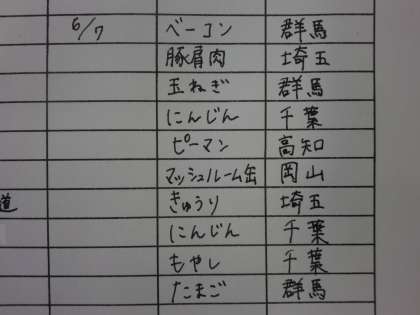 6/7 ベーコン 群馬
豚肩肉 埼玉
玉ねぎ 群馬
にんじん 千葉
ピーマン 高知
マッシュルーム缶 岡山
道 きゅうり 埼玉
にんじん 千葉
もやし 千葉
たまご 群馬